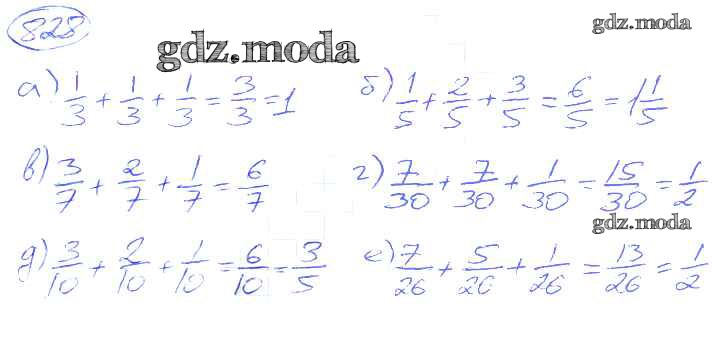 828
gdz.moda
gdz.moda
а) 1/3 + 1/3 + 1/3 = 3/3 = 1
б) 1/5 + 2/5 + 3/5 = 6/5 = 1 1/5
в) 3/7 + 2/7 + 1/7 = 6/7
г) 7/30 + 7/30 + 1/30 = 15/30 = 1/2
gdz.moda
д) 3/10 + 2/10 + 1/10 = 6/10 = 3/5
е) 7/26 + 5/26 + 1/26 = 13/26 = 1/2